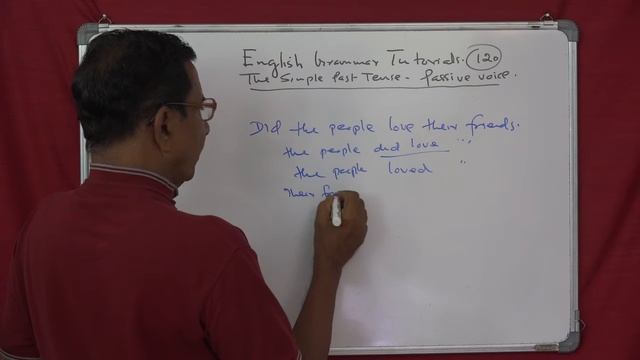 English Grammar Tutorials. 120
The Simple Past Tense - Passive voice.
Did the people love their friends.
the people did love "
the people loved "
their f